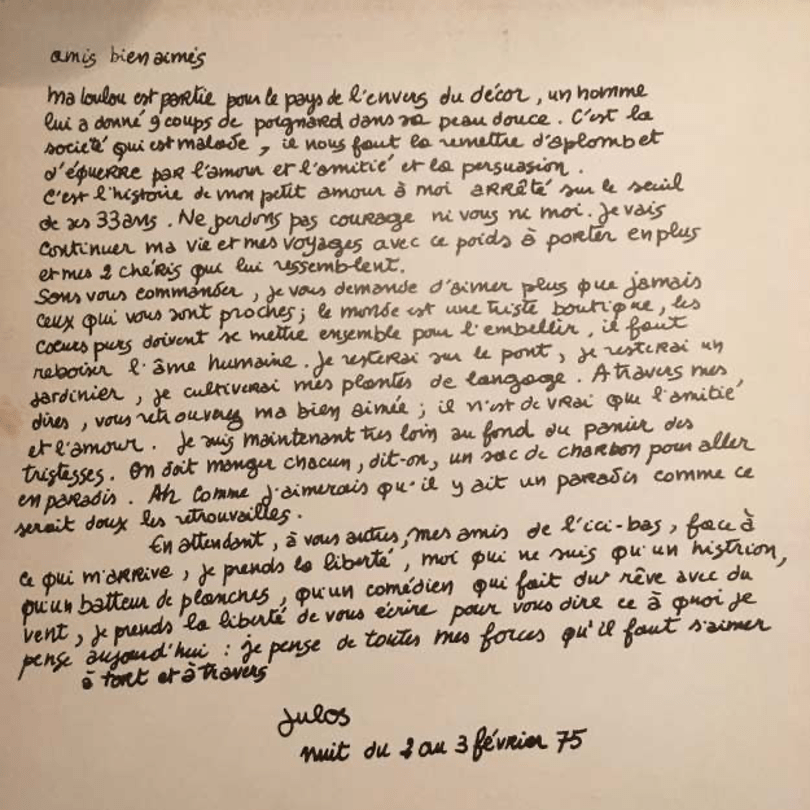 amis bien aimés
ma loulou est partie pour le pays de l'envers du décor, un homme
lui a donné 9 coups de poignard dans sa peau douce. C'est la
société qui est malade, il nous faut la remettre d'aplomb et
d'équerre par l'amour et l'amitié et la persuasion.
C'est l'histoire de mon petit amour à moi arrêté sur le seuil
de ses 33 ans. Ne perdons pas courage ni vous ni moi. Je vais
continuer ma vie et mes voyages avec ce poids à porter en plus
et mes 2 chéris qui lui ressemblent.
Sans vous commander, je vous demande d'aimer plus que jamais
ceux qui vous sont proches; le monde est une triste boutique, les
coeurs purs doivent se mettre ensemble pour l'embellir, il faut
reboiser l'âme humaine. Je resterai sur le pont, je resterai un
jardinier, je cultiverai mes plantes de langage. A travers mes
dires, vous retrouverez ma bien aimée; il n'est de vrai que l'amitié
et l'amour. Je suis maintenant très loin au fond du panier des
tristesses. On doit manger chacun, dit-on, un sac de charbon pour aller
en paradis. Ah comme j'aimerais qu'il y ait un paradis comme ce
serait doux les retrouvailles.
En attendant, à vous autres, mes amis de l'ici-bas, face à
ce qui m'arrive, je prends la liberté, moi qui ne suis qu'un histrion,
qu'un batteur de planches, qu'un comédien qui fait du rêve avec du
vent, je prends la liberté de vous écrire pour vous dire ce à quoi je
pense aujourd'hui : je pense de toutes mes forces qu'il faut s'aimer
à tort et à travers
Julos
nuit du 2 au 3 février 75